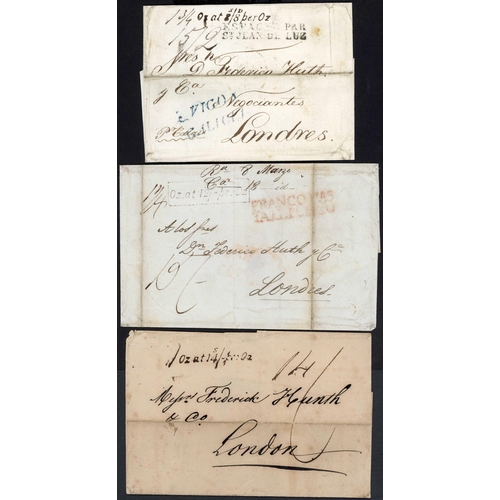 1 3/4 Oz at 8/5 per Oz
15/2
ESPAGNE PAR
ST JEAN DE LUZ
Sres
D. Federico Huth
y Ca
Negociantes
VIGO
GALICIA
Londres.
Ra 8 Marzo
Ca 18 id
Oz at
FRANCO
A los Sres
Dn Federico Huth y Ca
Londres
Oz at 14/ per Oz
14/
Messrs Frederick Hunth
& Co
London